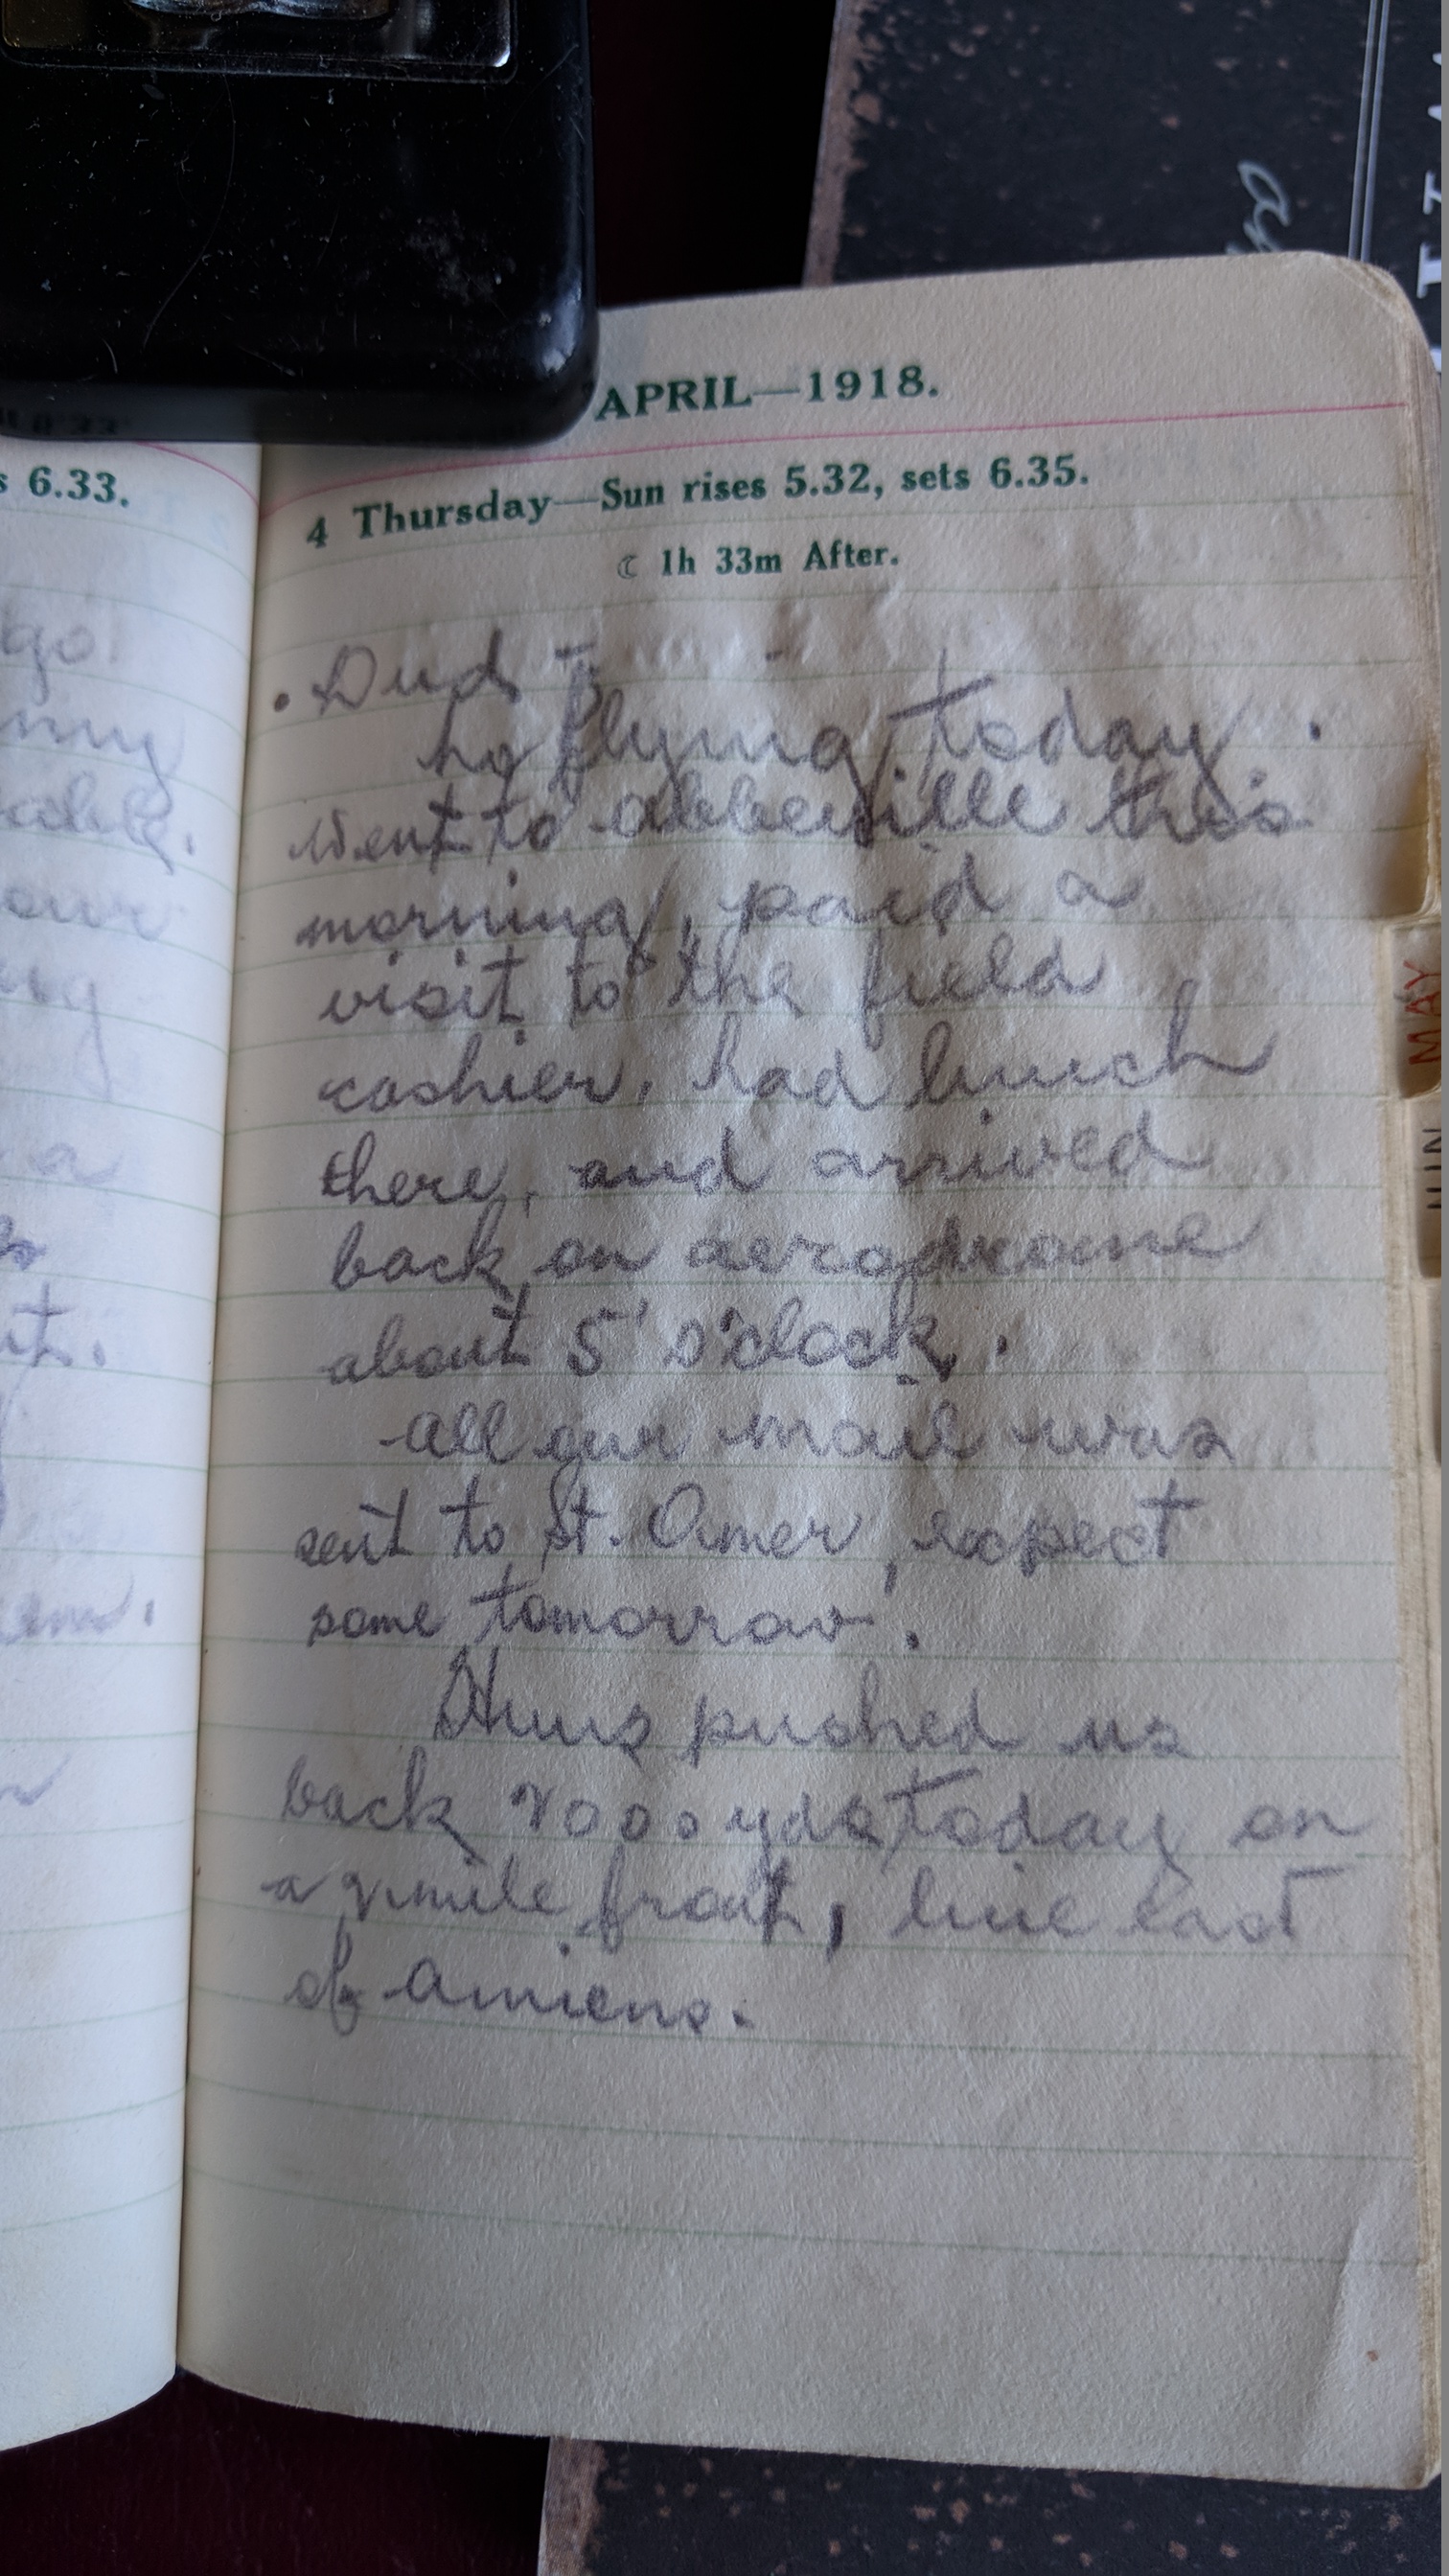 APRIL—1918.
s 6.33.
4 Thursday—Sun rises 5.32, sets 6.35.
☾ 1h 33m After.
. Dud —
no flying today.
Went to abbeville this
morning, paid a
visit to the field
cashier, had lunch
there, and arrived
back on aerodrome
about 5' o'clock.
all our mail was
sent to St. Omer, expect
some tomorrow.
Huns pushed us
back 2000 yds today on
a 2 mile front, line east
of Amiens.
go
able.
our
a
MAY
JUN